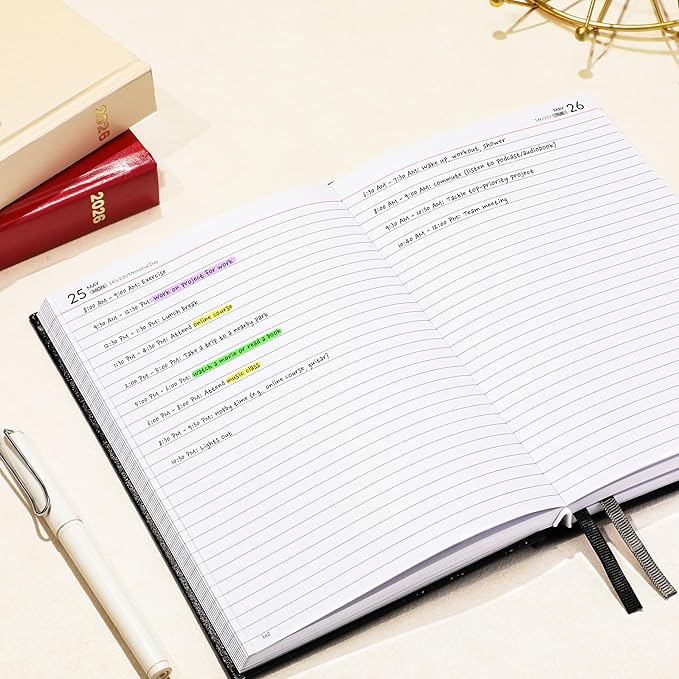 2026
2026
25 MAY MON 145/220 Memorial Day
8:00 AM - 9:00 AM: Exercise
9:30 AM - 12:30 PM: Work on project for work
12:30 PM - 1:30 PM: Lunch break
1:30 PM - 4:30 PM: Attend online course
PM - 5:00 PM: Take a trip to a nearby park
PM - 6:00 PM: Watch a movie or read a book
PM - 8:00 PM: Attend music class
8:30 PM - 9:30 PM: Hobby time (e.g., online course, guitar)
10:30 PM: Lights out
142
MAY 26
TUE
6:30 AM - 7:30 AM: Wake up, workout, shower
8:00 AM - 9:00 AM: Commute (listen to podcast/audiobook)
9:30 AM - 10:30 AM: Tackle top-priority project
10:40 AM - 12:00 PM: Team meeting